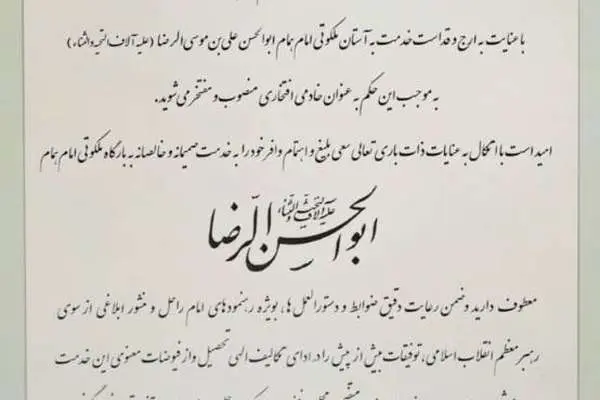 با عنایت به ارج و قداست خدمت به آستان ملکوتی امام همام ابوالحسن علی بن موسی الرضا (علیه آلاف التحیه والثناء)
به موجب این حکم به عنوان خادمی افتخاری منصوب و مفتخر می شوید.
امید است با اتکال به عنایات ذات باری تعالی سعی بلیغ و اهتمام وافر خود را به خدمت صمیمانه و خالصانه به بارگاه ملکوتی امام همام
ابوالحسن الرضا علیه آلاف التحیه والثناء
معطوف دارید و ضمن رعایت دقیق ضوابط و دستورالعمل ها، بویژه رهنمودهای امام راحل و منشور ابلاغی از سوی
رهبر معظم انقلاب اسلامی، توفیقات بیش از پیش را در ادای تکالیف الهی تحصیل و از فیوضات معنوی این خدمت